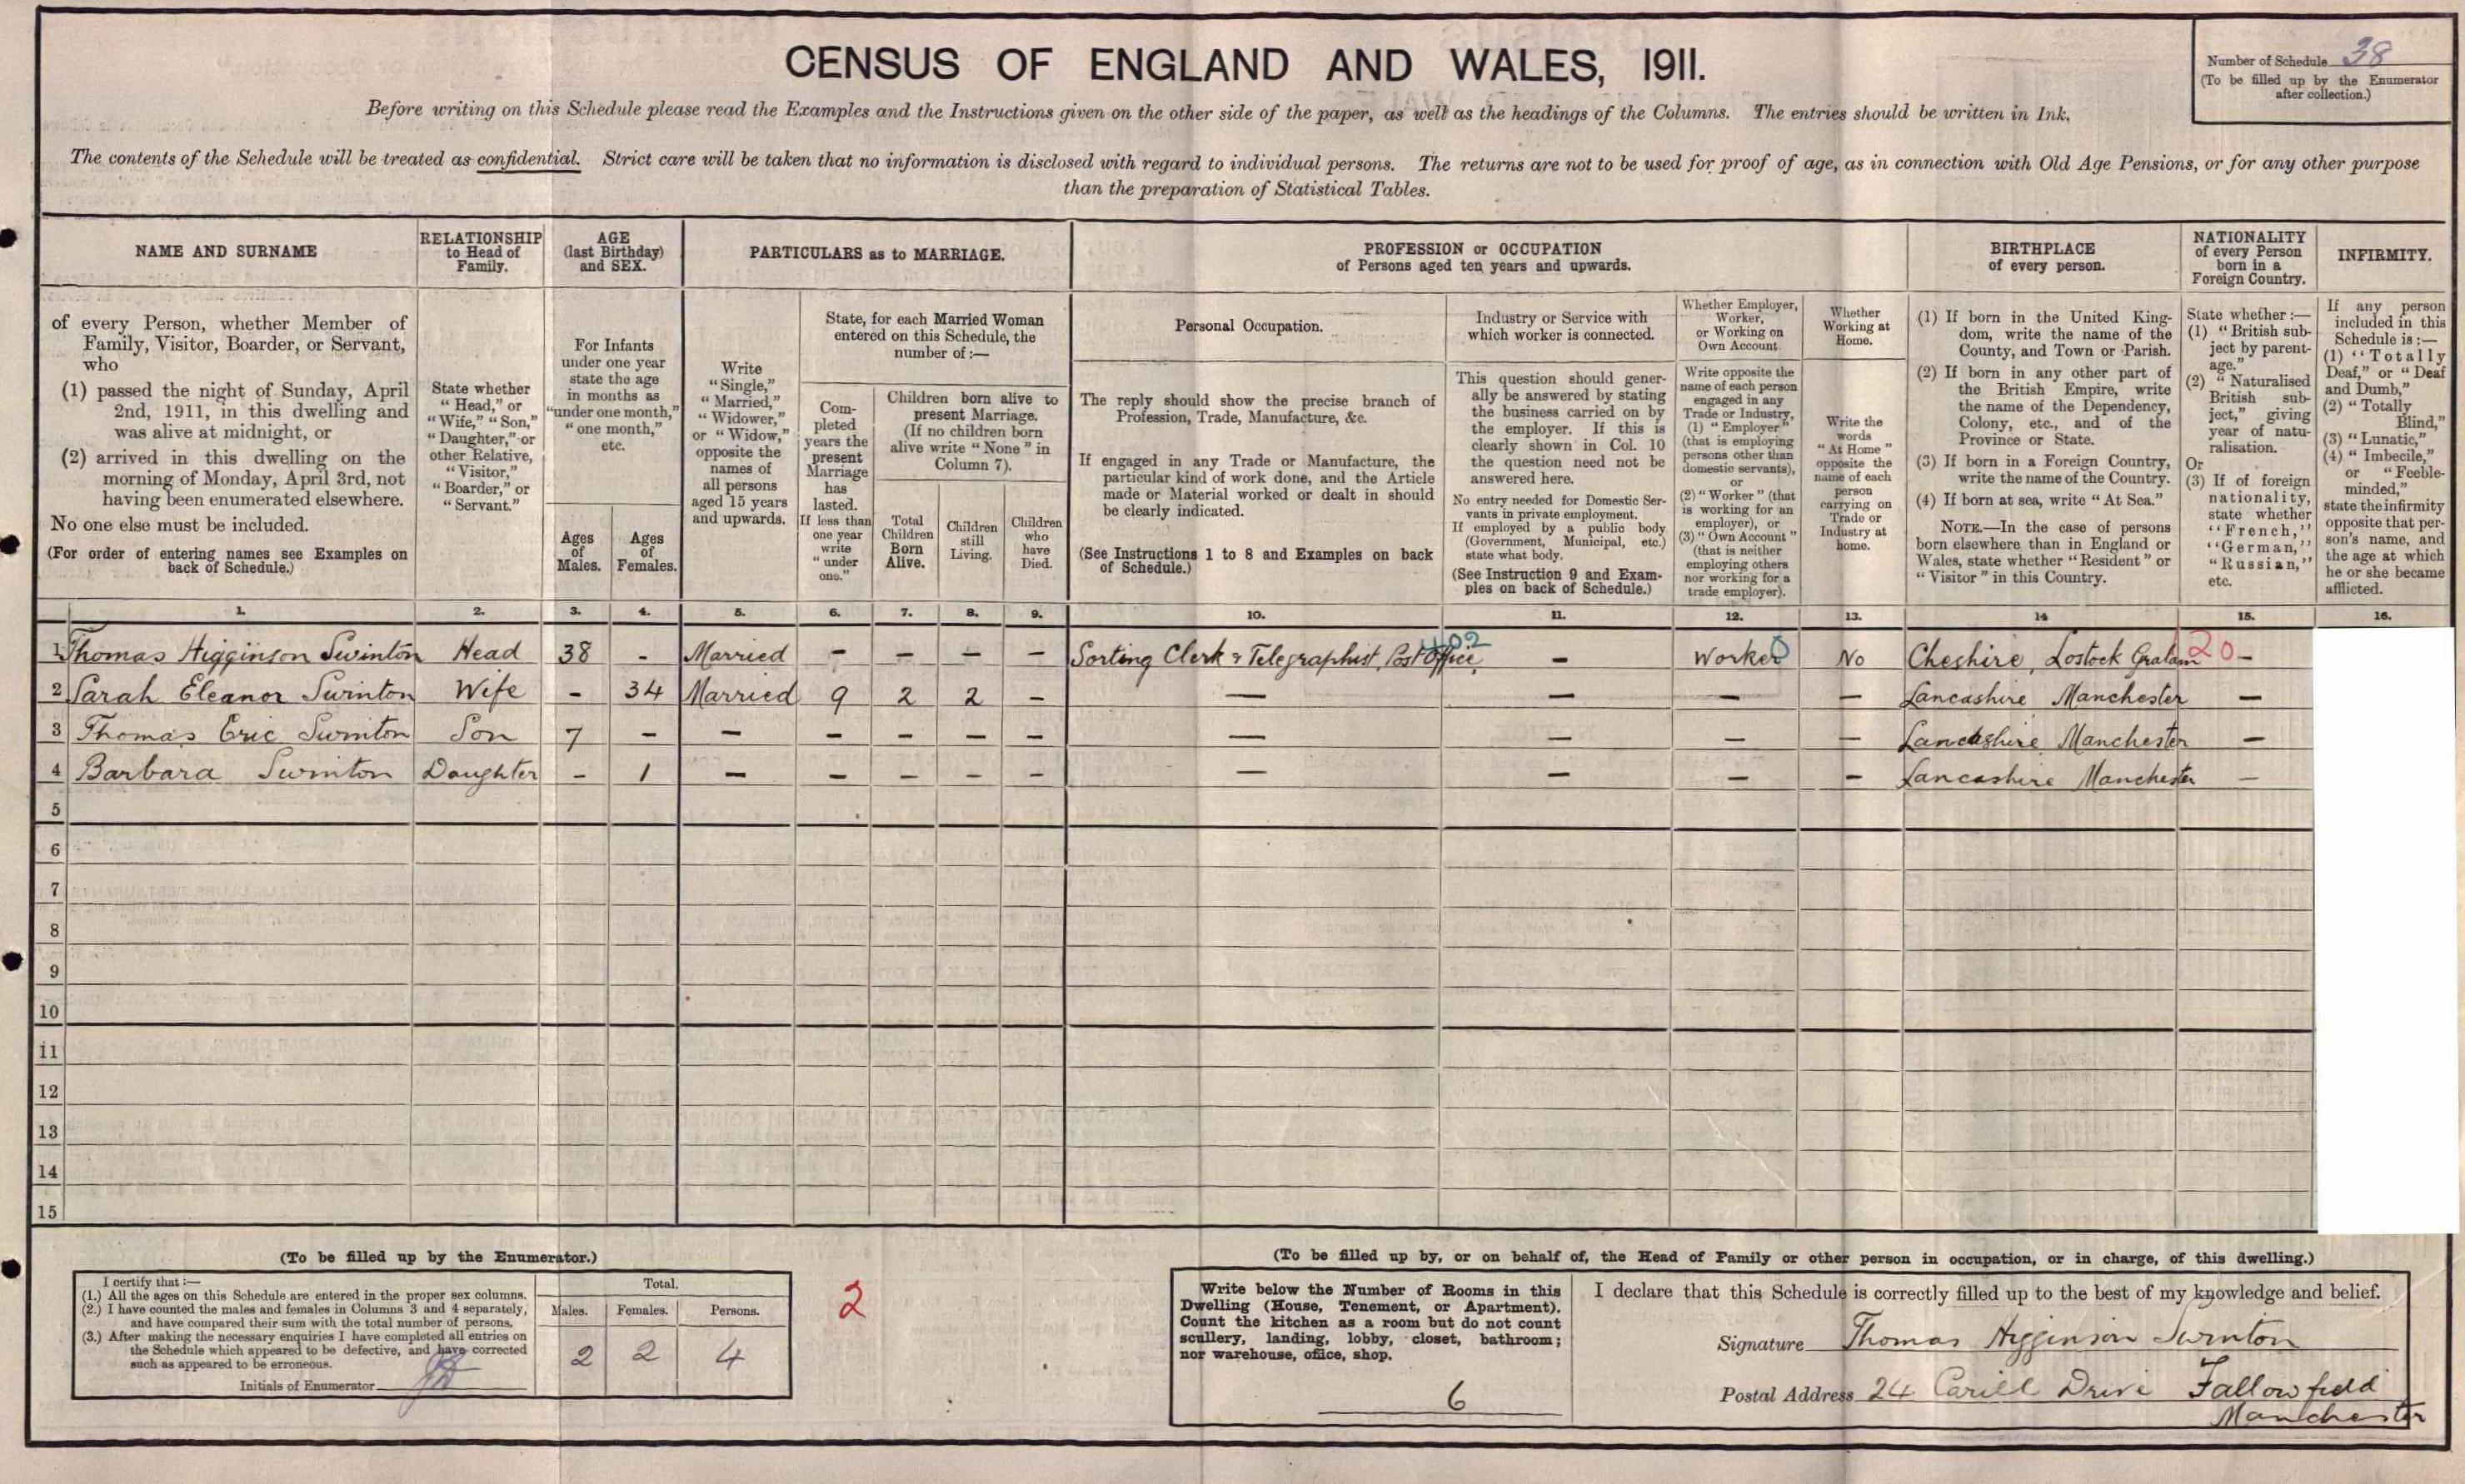 CENSUS OF ENGLAND AND WALES, 1911.
Number of Schedule 38
(To be filled up by the Enumerator
after collection.)
Before writing on this Schedule please read the Examples and the Instructions given on the other side of the paper, as well as the headings of the Columns. The entries should be written in Ink.
The contents of the Schedule will be treated as confidential. Strict care will be taken that no information is disclosed with regard to individual persons. The returns are not to be used for proof of age, as in connection with Old Age Pensions, or for any other purpose
than the preparation of Statistical Tables.
NAME AND SURNAME
of every Person, whether Member of
Family, Visitor, Boarder, or Servant,
who
(1) passed the night of Sunday, April
2nd, 1911, in this dwelling and
was alive at midnight, or
(2) arrived in this dwelling on the
morning of Monday, April 3rd, not
having been enumerated elsewhere.
No one else must be included.
(For order of entering names see Examples on
back of Schedule.)
RELATIONSHIP
to Head of
Family.
State whether
"Head," or
"Wife," "Son,"
"Daughter," or
other Relative,
"Visitor,"
"Boarder," or
"Servant."
AGE
(last Birthday)
and SEX.
For Infants
under one year
state the age
in months as
"under one month,"
"one month,"
etc.
Ages
of
Males.
Ages
of
Females.
PARTICULARS as to MARRIAGE.
Write
"Single,"
"Married,"
"Widower,"
or "Widow,"
opposite the
names of
all persons
aged 15 years
and upwards.
State, for each Married Woman
entered on this Schedule, the
number of :—
Com-
pleted
years the
present
Marriage
has
lasted.
If less than
one year
write
"under
one."
Children born alive to
present Marriage.
(If no children born
alive write "None" in
Column 7).
Total
Children
Born
Alive.
Children
still
Living.
Children
who
have
Died.
PROFESSION or OCCUPATION
of Persons aged ten years and upwards.
Personal Occupation.
The reply should show the precise branch of
Profession, Trade, Manufacture, &c.
If engaged in any Trade or Manufacture, the
particular kind of work done, and the Article
made or Material worked or dealt in should
be clearly indicated.
(See Instructions 1 to 8 and Examples on back
of Schedule.)
Industry or Service with
which worker is connected.
This question should gener-
ally be answered by stating
the business carried on by
the employer. If this is
clearly shown in Col. 10
the question need not be
answered here.
No entry needed for Domestic Ser-
vants in private employment.
If employed by a public body
(Government, Municipal, etc.)
state what body.
(See Instruction 9 and Exam-
ples on back of Schedule.)
Whether Employer,
Worker,
or Working on
Own Account.
Write opposite the
name of each person
engaged in any
Trade or Industry,
(1) "Employer"
(that is employing
persons other than
domestic servants),
or
(2) "Worker" (that
is working for an
employer), or
(3) "Own Account"
(that is neither
employing others
nor working for a
trade employer).
Whether
Working at
Home.
Write the
words
"At Home"
opposite the
name of each
person
carrying on
Trade or
Industry at
home.
BIRTHPLACE
of every person.
(1) If born in the United King-
dom, write the name of the
County, and Town or Parish.
(2) If born in any other part of
the British Empire, write
the name of the Dependency,
Colony, etc., and of the
Province or State.
(3) If born in a Foreign Country,
write the name of the Country.
(4) If born at sea, write "At Sea."
NOTE.—In the case of persons
born elsewhere than in England or
Wales, state whether "Resident" or
"Visitor" in this Country.
NATIONALITY
of every Person
born in a
Foreign Country.
State whether :—
(1) "British sub-
ject by parent-
age."
(2) "Naturalised
British sub-
ject," giving
year of natu-
ralisation.
Or
(3) If of foreign
nationality,
state whether
"French,"
"German,"
"Russian,"
etc.
INFIRMITY.
If any person
included in this
Schedule is :—
(1) "Totally
Deaf," or "Deaf
and Dumb,"
(2) "Totally
Blind,"
(3) "Lunatic,"
(4) "Imbecile,"
or "Feeble-
minded,"
state the infirmity
opposite that per-
son's name, and
the age at which
he or she became
afflicted.
1. 2. 3. 4. 5. 6. 7. 8. 9. 10. 11. 12. 13. 14 15. 16.
1 Thomas Higginson Swinton Head 38 - Married - - - - Sorting Clerk & Telegraphist, Post Office, 402 - Worker 0 No Cheshire, Lostock Gralam 20 -
2 Sarah Eleanor Swinton Wife - 34 Married 9 2 2 - - - - - Lancashire Manchester -
3 Thomas Eric Swinton Son 7 - - - - - - - - - - Lancashire Manchester -
4 Barbara Swinton Daughter - 1 - - - - - - - - - Lancashire Manchester -
5
6
7
8
9
10
11
12
13
14
15
(To be filled up by the Enumerator.)
I certify that :—
(1.) All the ages on this Schedule are entered in the proper sex columns.
(2.) I have counted the males and females in Columns 3 and 4 separately,
and have compared their sum with the total number of persons.
(3.) After making the necessary enquiries I have completed all entries on
the Schedule which appeared to be defective, and have corrected
such as appeared to be erroneous.
Initials of Enumerator
Total.
Males. Females. Persons.
2 2 4
2
(To be filled up by, or on behalf of, the Head of Family or other person in occupation, or in charge, of this dwelling.)
Write below the Number of Rooms in this
Dwelling (House, Tenement, or Apartment).
Count the kitchen as a room but do not count
scullery, landing, lobby, closet, bathroom;
nor warehouse, office, shop.
6
I declare that this Schedule is correctly filled up to the best of my knowledge and belief.
Signature Thomas Higginson Swinton
Postal Address 24 Carill Drive Fallowfield
Manchester